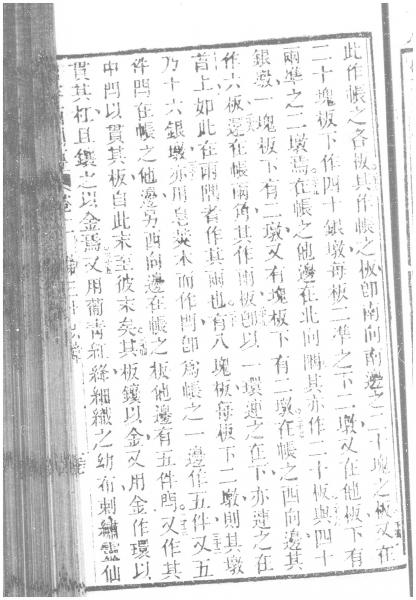 此作帳之各板其作帳之板卽南向南邊之二十塊之板又在
二十塊板下作四十銀墩每板二準之下二墩又在他板下有
兩準之二墩焉在帳之他邊在北向隅其亦作二十板與四十
銀墩一塊板下有二墩又有塊板下有二墩在帳之西向邊其
作六板邊在帳兩角其作兩板卽以一環連之在下亦連之在
首上如此在兩隅者作其兩也有八塊板每板下二墩則其墩
乃十六銀墩亦用息英木而作閂卽爲帳之一邊作五件又五
件閂在帳之他邊另西向邊在帳之板他邊有五件閂又作其
中閂以貫其板自此末至彼末矣其板鑲以金又用金作環以
貫其杠且鑲之以金焉又用葡青紅綠細織之幼布刺繡靈仙